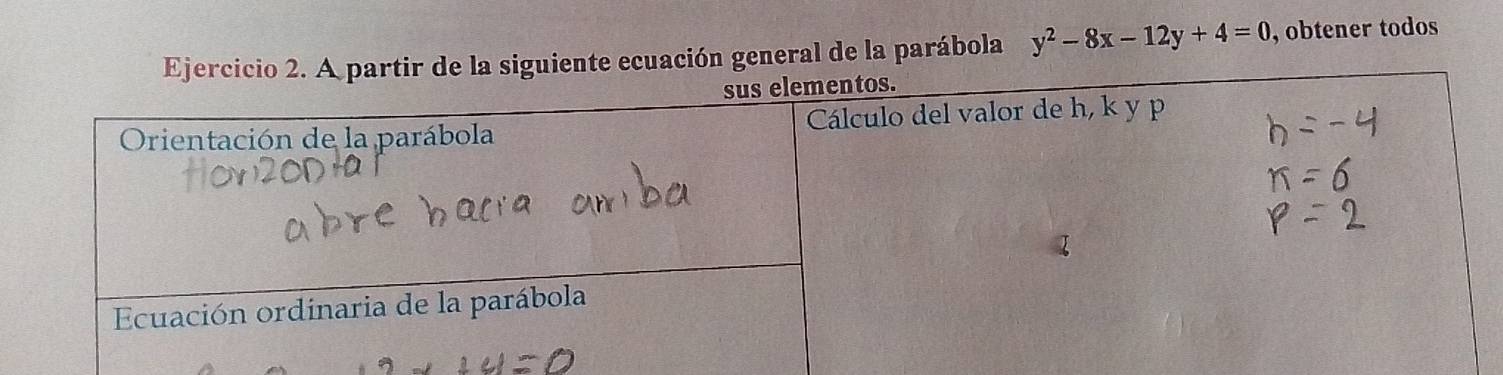 Ejercicio 2. A partir de la siguiente ecuación general de la parábola y² – 8x – 12y + 4 = 0, obtener todos
sus elementos.
Orientación de la parábola
Horizontal
abre hacia arriba
Ecuación ordinaria de la parábola
+4=0
Cálculo del valor de h, k y p
h=-4
k=6
p=2